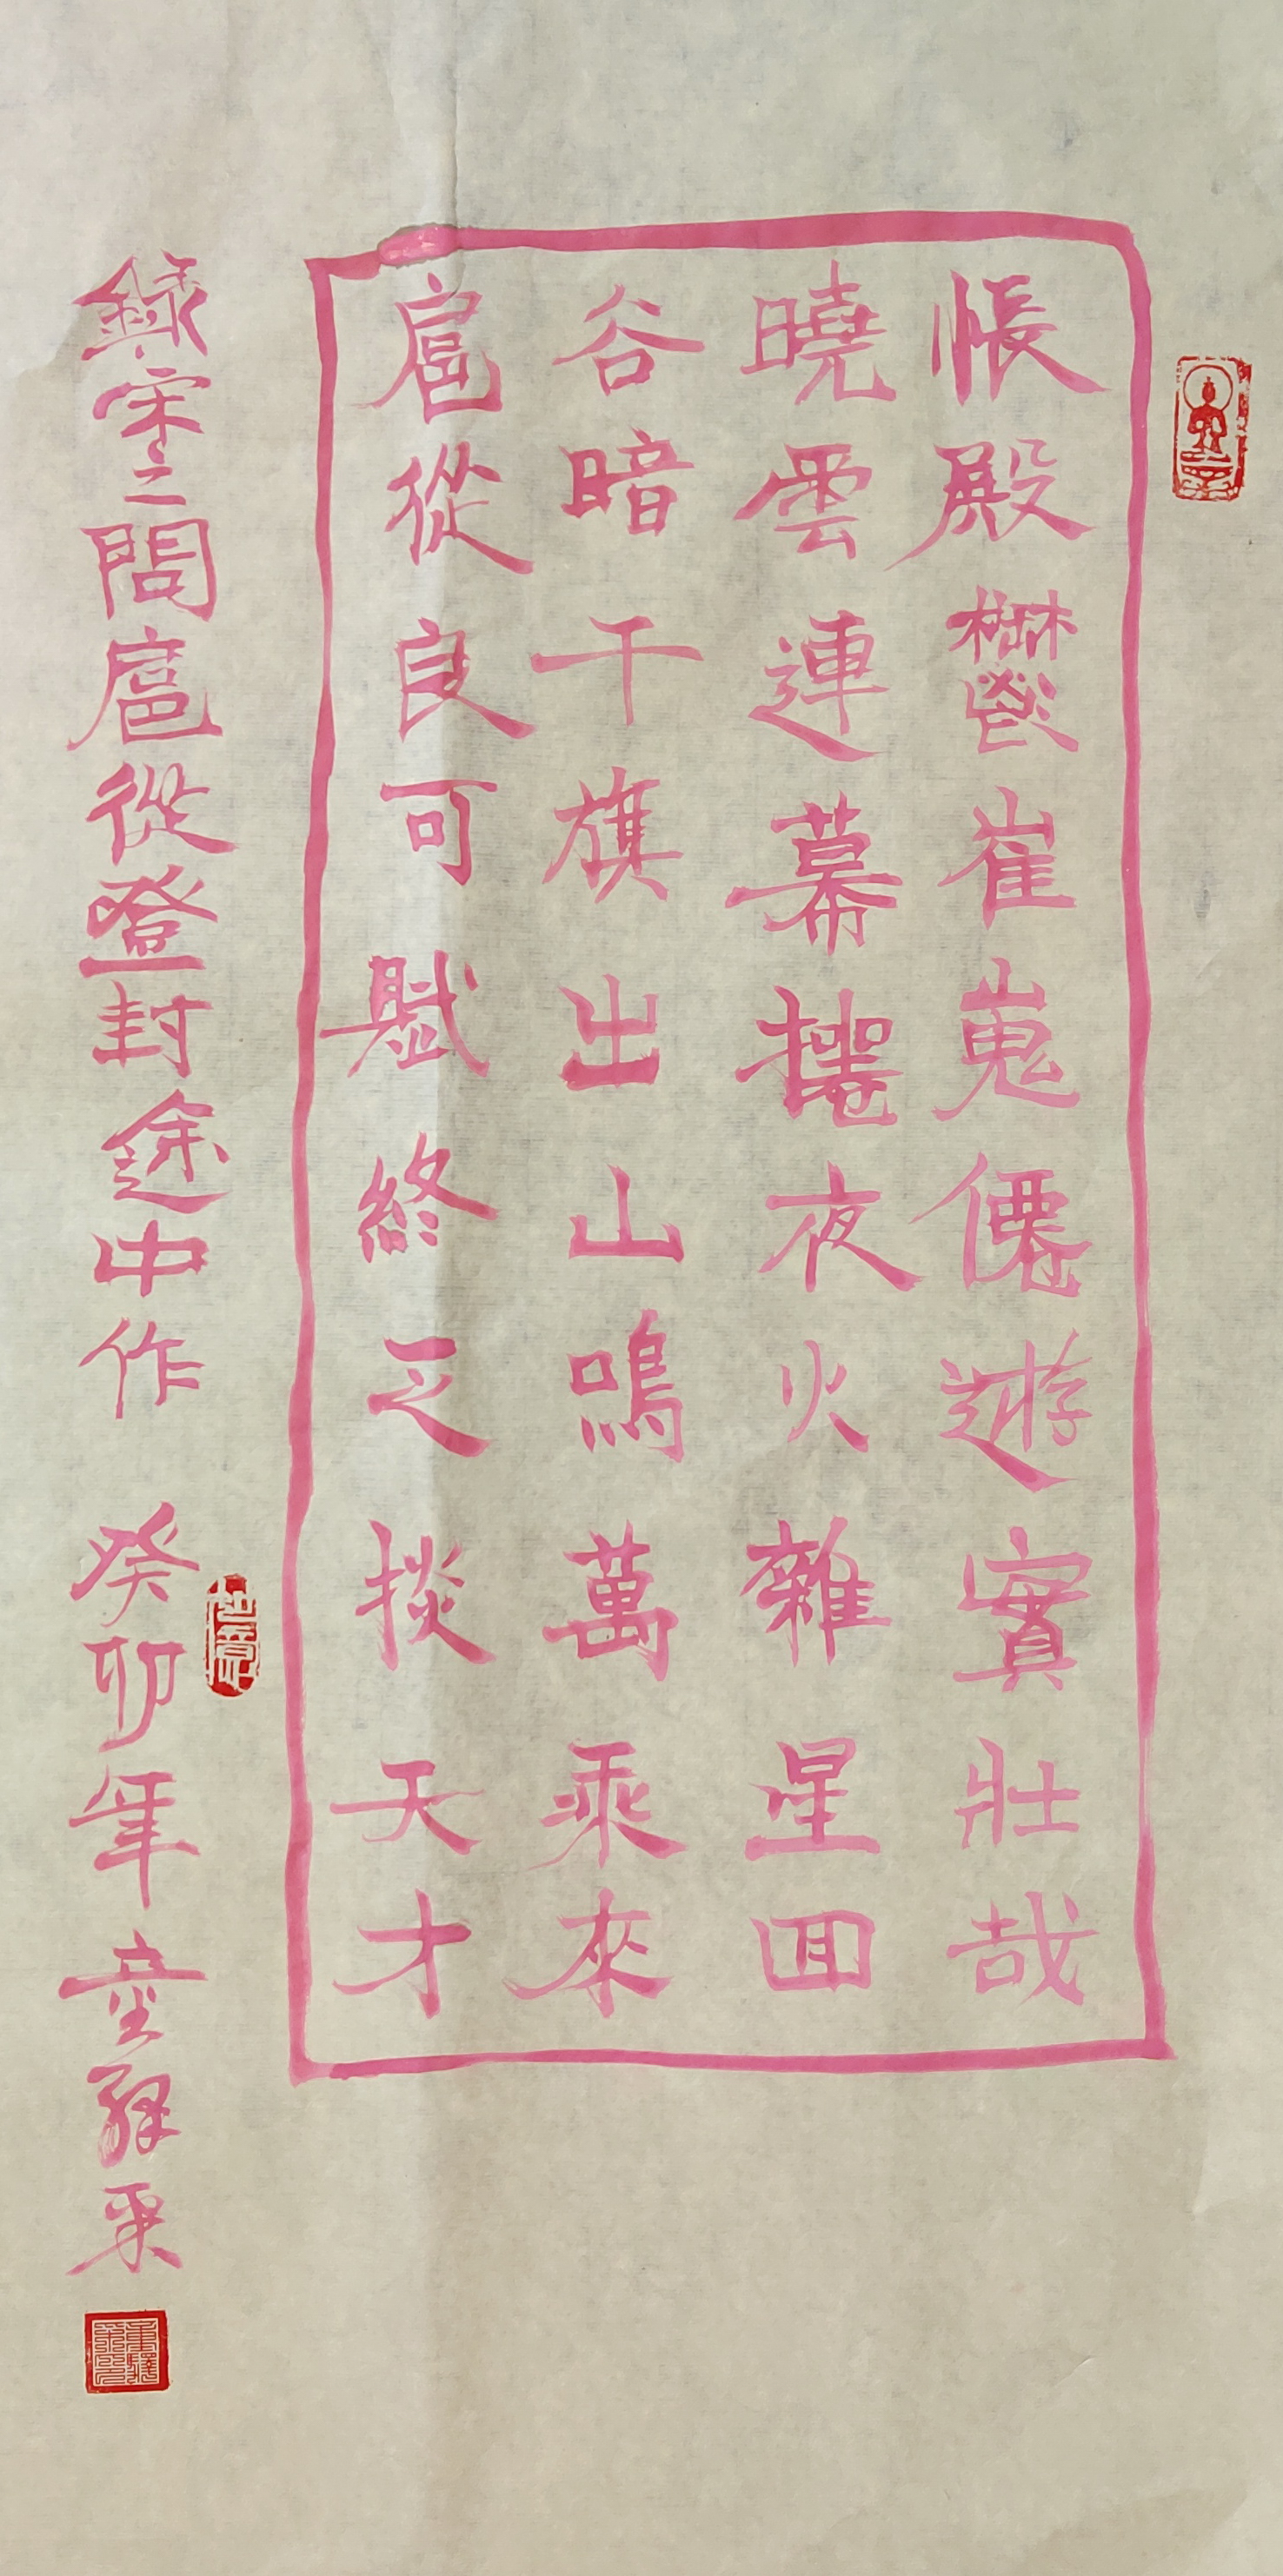 帳殿鬱崔嵬僊遊實壯哉
曉雲連幕捲夜火雜星囬
谷暗千旗出山鳴萬乘來
扈從良可賦終乏掞天才
錄宋之問扈從登封途中作 癸卯年 童